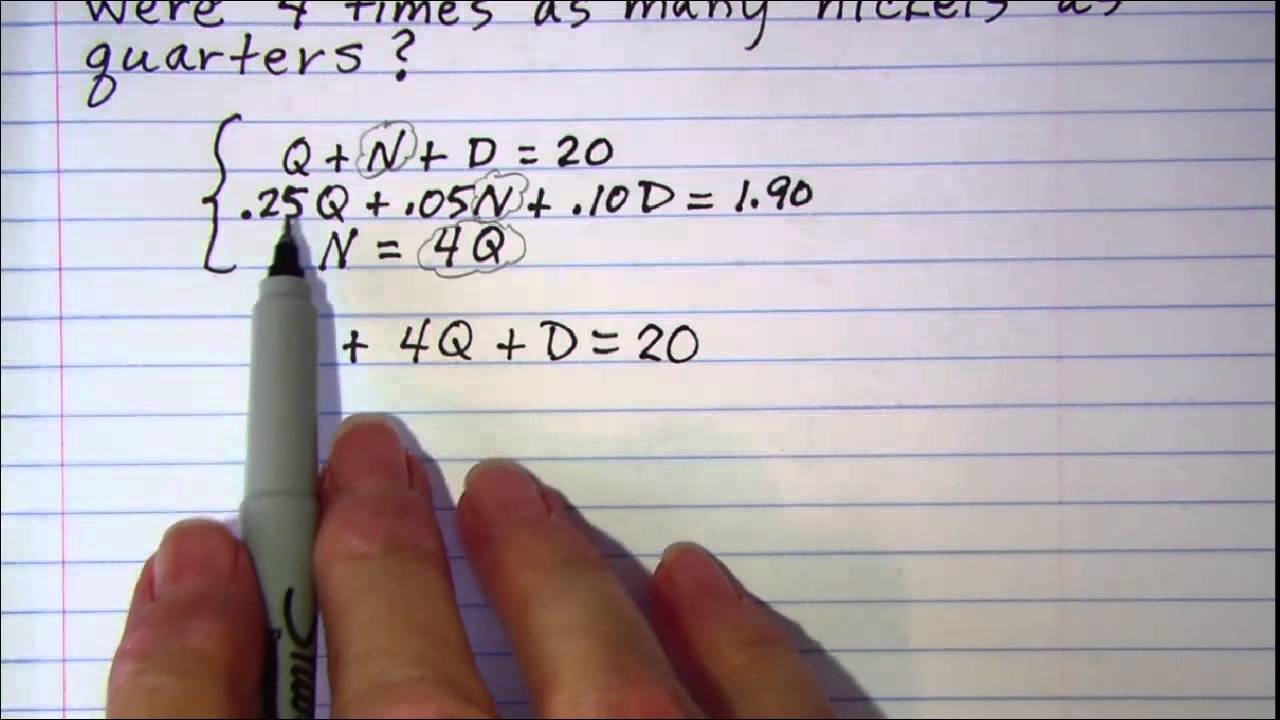 were 4 times as many nickels as
quarters?
Q + N + D = 20
.25Q + .05N + .10D = 1.90
N = 4Q
+ 4Q + D = 20